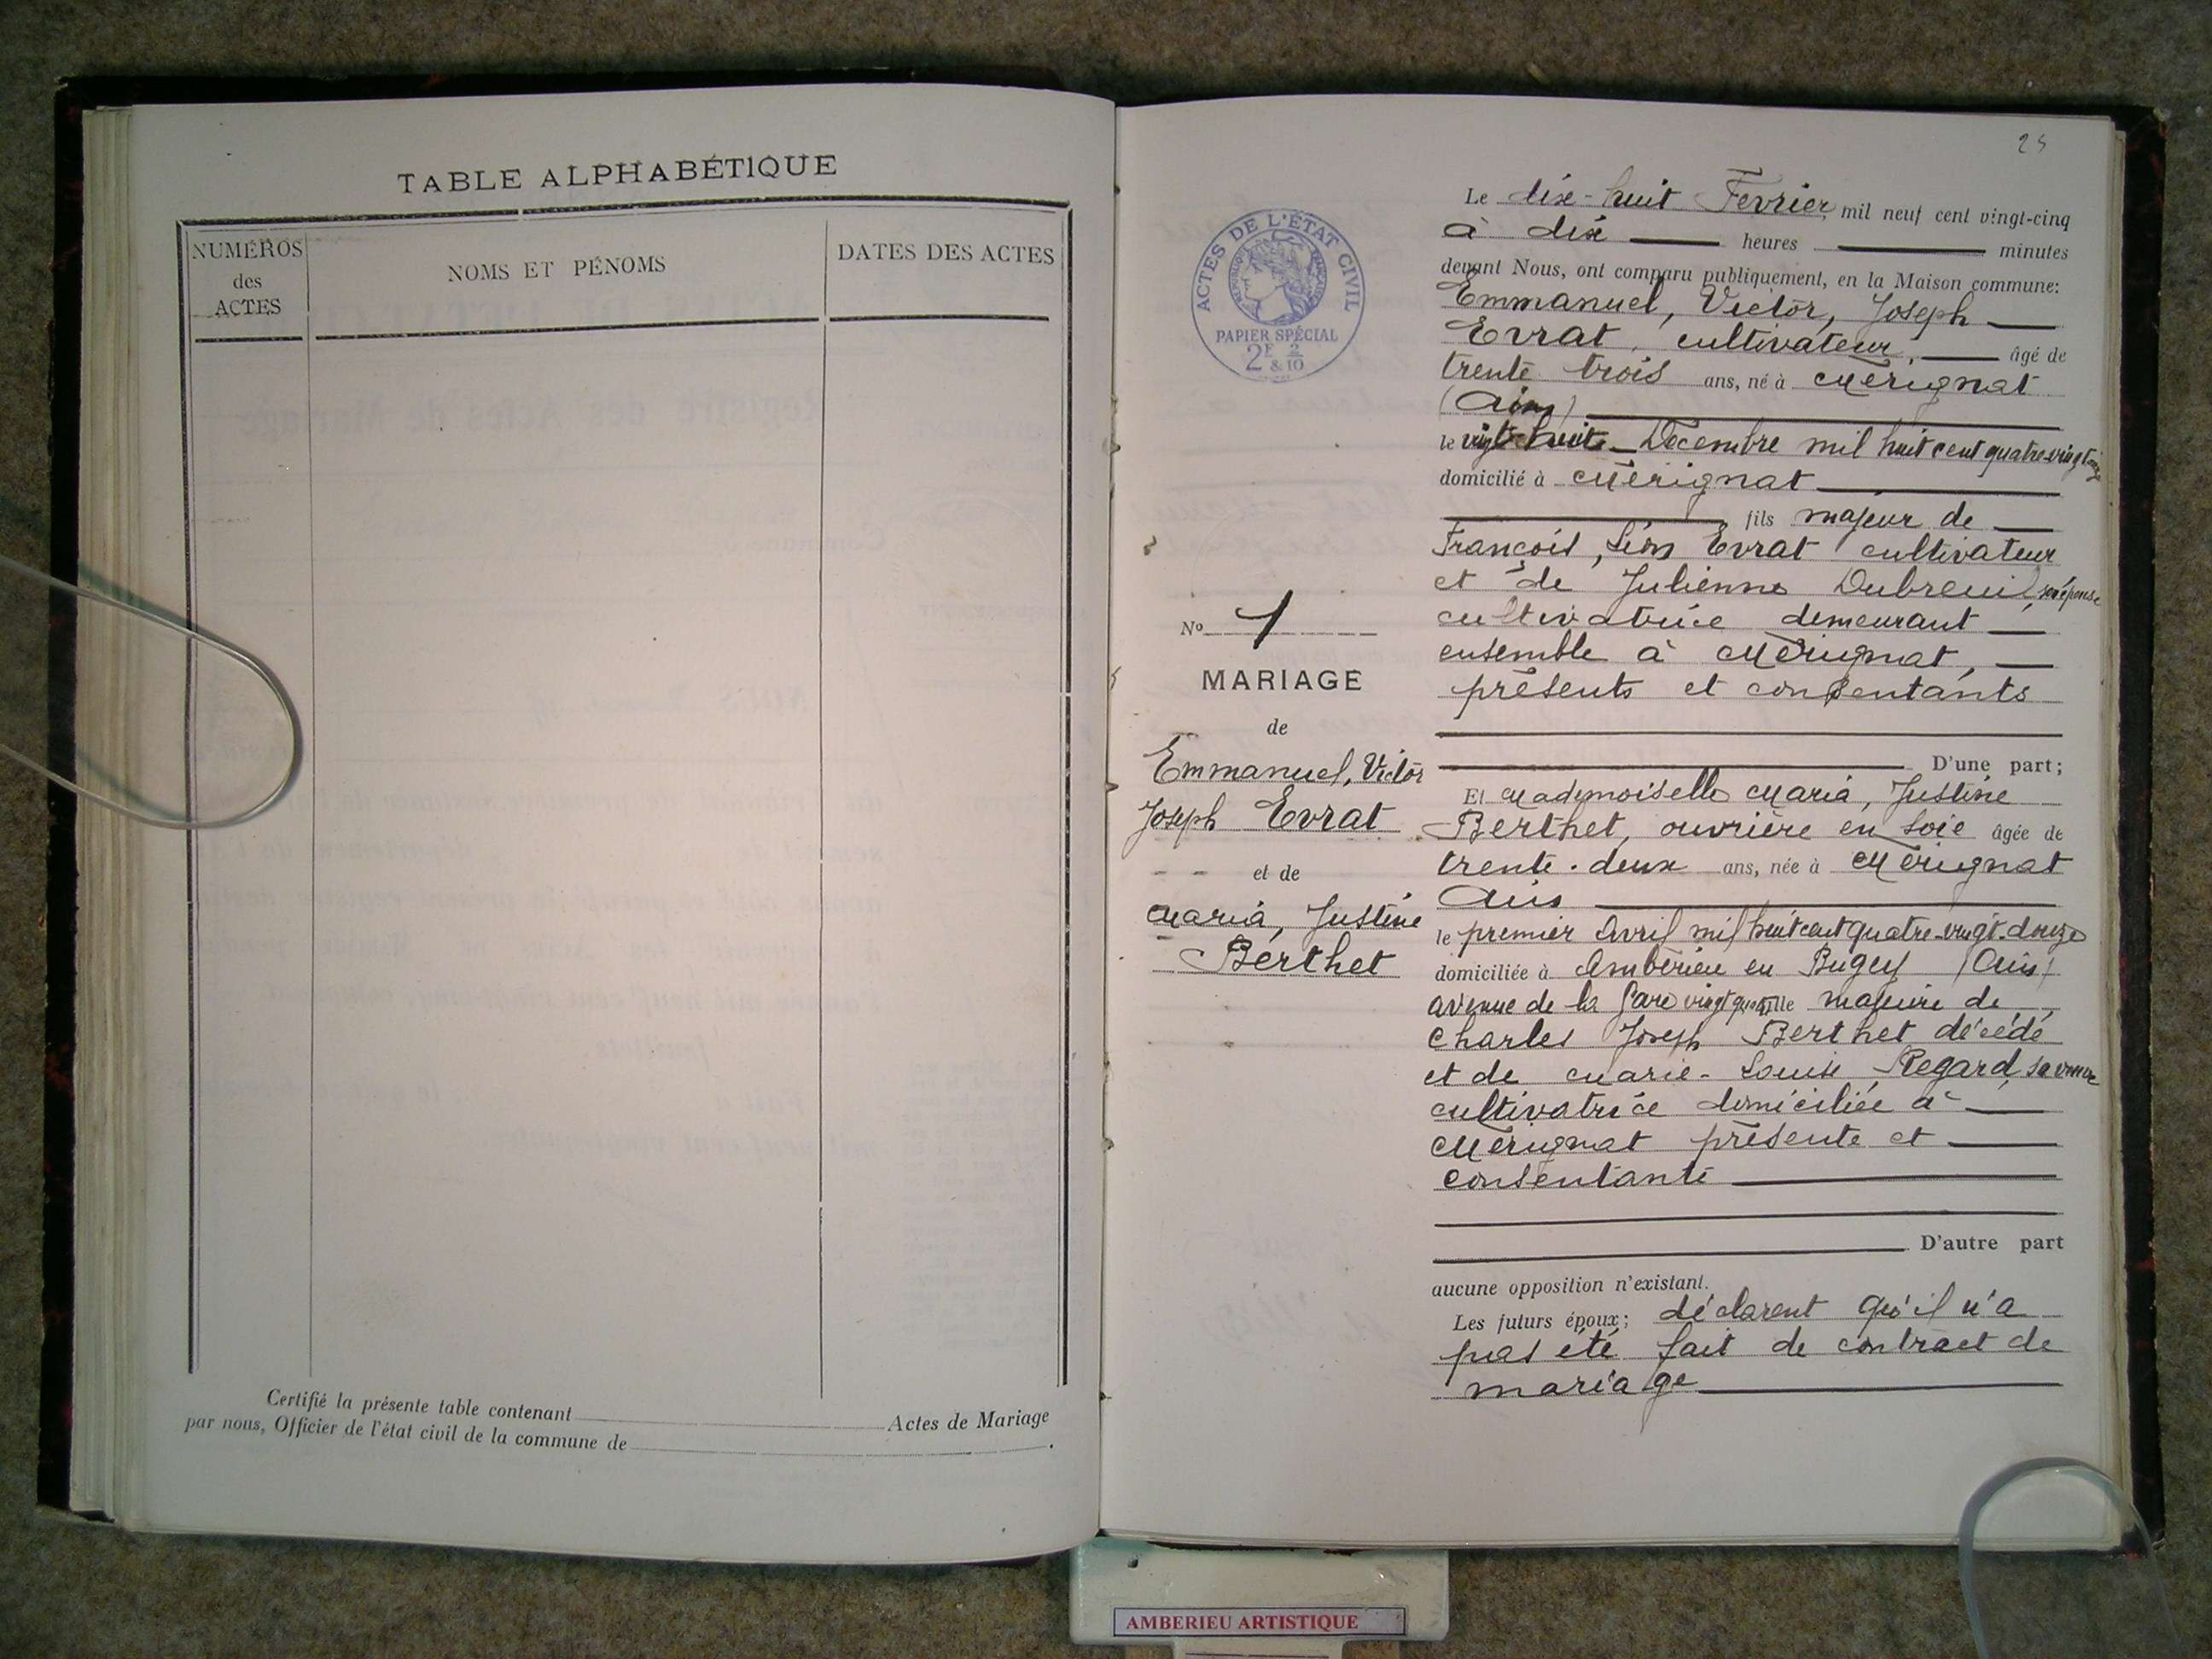 TABLE ALPHABÉTIQUE
NUMÉROS
des
ACTES
NOMS ET PÉNOMS
DATES DES ACTES
Certifié la présente table contenant Actes de Mariage
par nous, Officier de l'état civil de la commune de .
25
ACTES DE L'ÉTAT CIVIL
RÉPUBLIQUE FRANÇAISE
PAPIER SPÉCIAL
2F 2
& 10
No 1
MARIAGE
de
Emmanuel, Victor
Joseph Evrat
et de
Maria, Justine
Berthet
Le dix-huit Fevrier mil neuf cent vingt-cinq
à dix heures minutes
devant Nous, ont comparu publiquement, en la Maison commune:
Emmanuel, Victor, Joseph
Evrat, cultivateur, âgé de
trente trois ans, né à Mérignat
(Ain)
le vingt-huit Décembre mil huit cent quatre-vingt onze
domicilié à Mérignat
fils majeur de
François, Léon Evrat cultivateur
et de Julienne Dubreuil, son épouse
cultivatrice demeurant
ensemble à Mérignat,
présents et consentants
D'une part;
Et Mademoiselle Maria, Justine
Berthet, ouvrière en soie âgée de
trente-deux ans, née à Mérignat
Ain
le premier Avril mil huit cent quatre-vingt-douze
domiciliée à Ambérieu en Bugey (Ain)
avenue de la Gare vingt quatre fille majeure de
Charles Joseph Berthet décédé
et de Marie-Louise Regard, sa veuve
cultivatrice domiciliée à
Mérignat présente et
consentante
D'autre part
aucune opposition n'existant.
Les futurs époux; déclarent qu'il n'a
pas été fait de contract de
mariage
AMBERIEU ARTISTIQUE